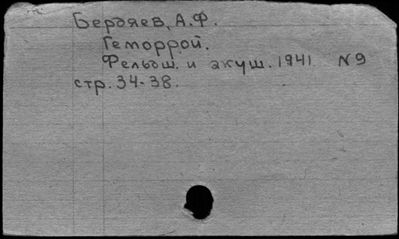 Бердяев, А.Ф.
Геморрой.
Фельдш. и акуш. 1941 N9
стр. 34-38.